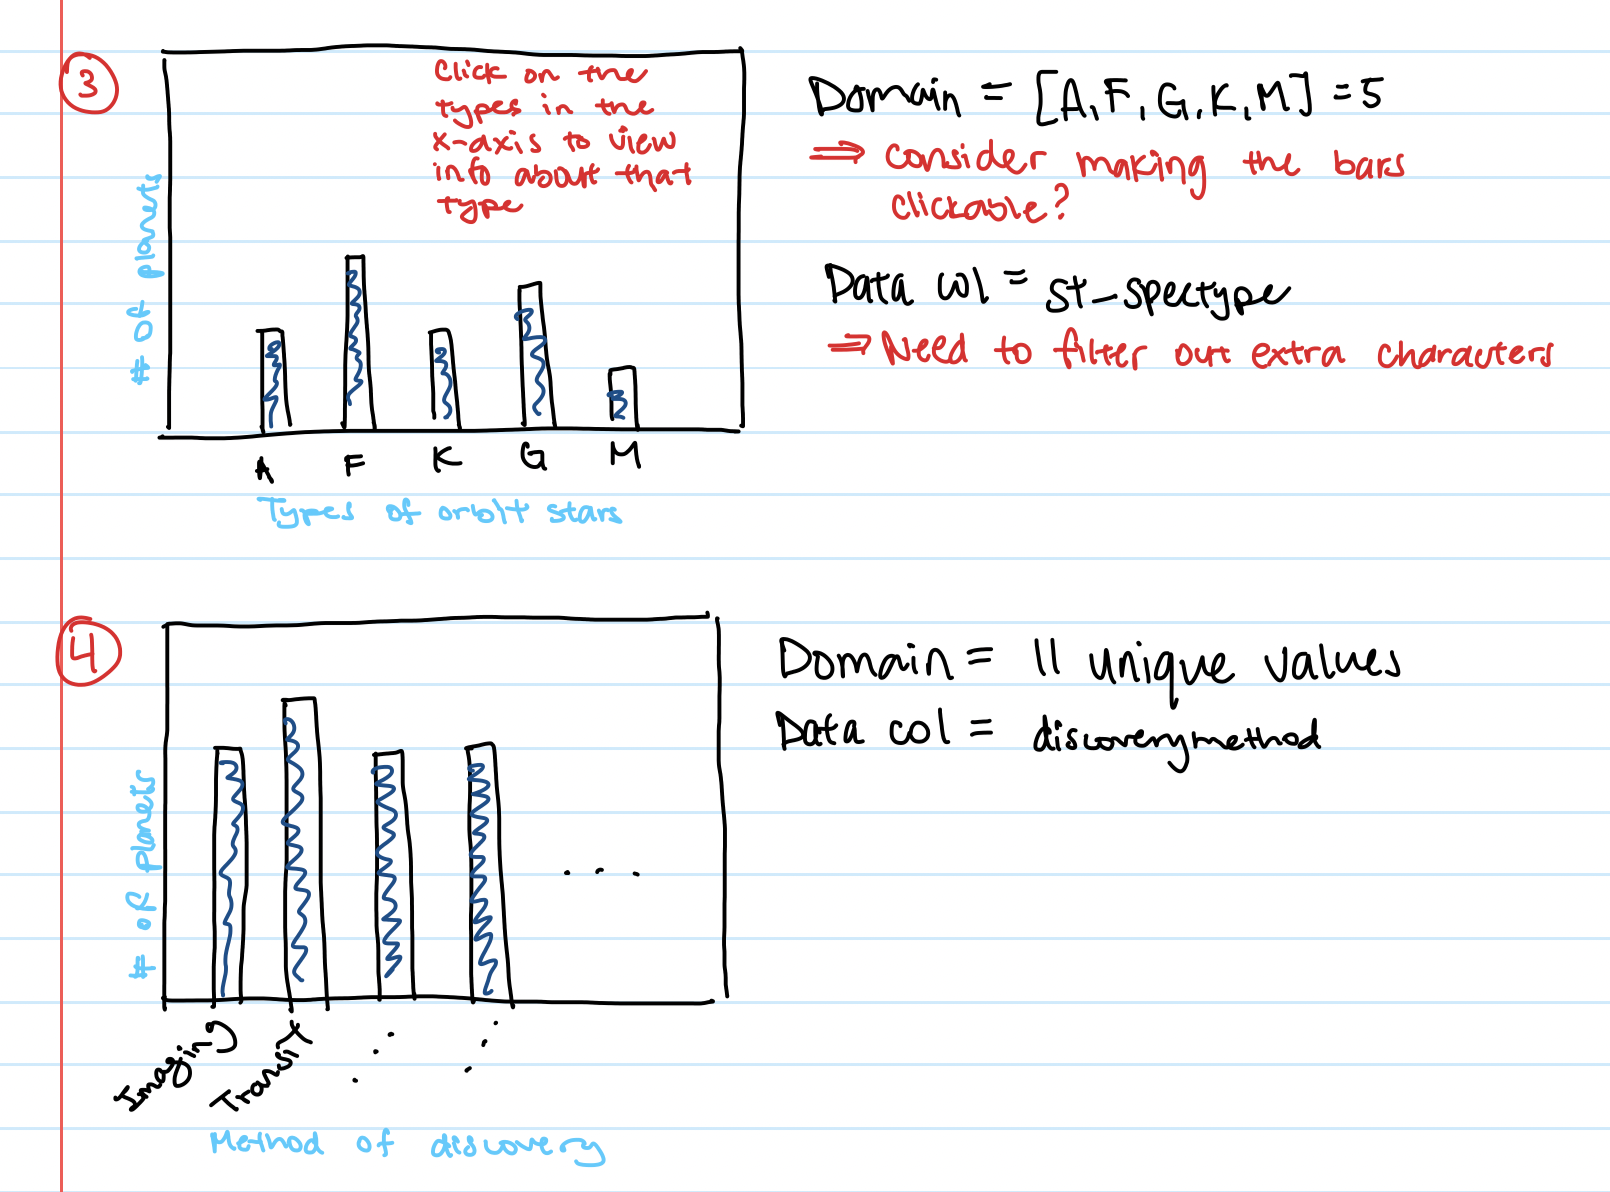 3
Click on the
types in the
x-axis to view
info about that
type
# of planets
A F K G M
Types of orbit stars
Domain = [A, F, G, K, M] = 5
⇒ consider making the bars
clickable?
Data col = st_spectype
⇒ Need to filter out extra characters
4
# of planets
...
Imaging Transit ... ...
Method of discovery
Domain = 11 unique values
Data col = discoverymethod